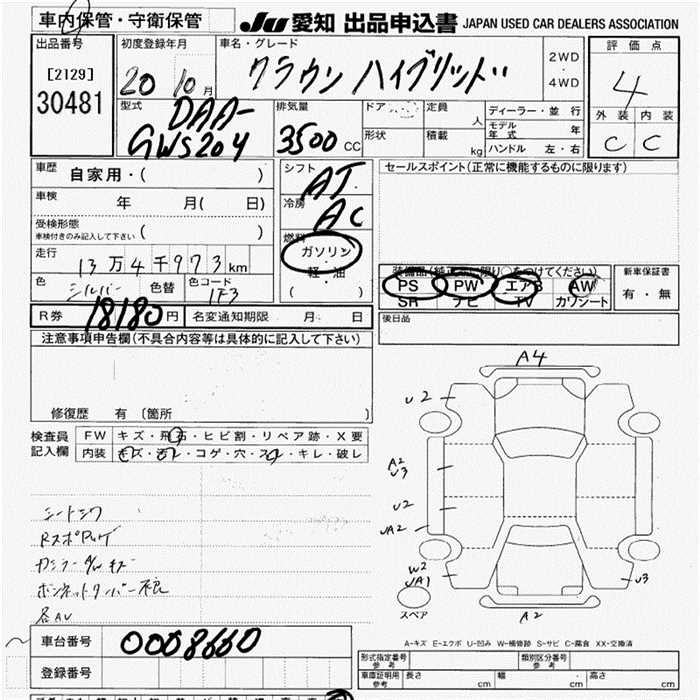 車内保管・守衛保管
JU 愛知 出品申込書 JAPAN USED CAR DEALERS ASSOCIATION
出品番号
[2129]
30481
初度登録年月
20 10月
車名・グレード
クラウン ハイブリッド
2WD
・
4WD
評価点
4
外装 内装
C C
型式
DAA-
GWS204
排気量
3500 CC
ドア
形状
定員 人
積載 kg
ディーラー・並行
モデル年式 年
ハンドル 左・右
車歴
自家用・( )
車検
年 月( 日)
受検形態
車検付きのみ記入して下さい ( )
走行
13万4千973km
色
シルバー
色替
色コード
1F3
シフト
AT
冷房
AC
燃料
ガソリン
軽・油
( )
セールスポイント(正常に機能するものに限ります)
装備品(純正品に限り○をつけてください)
PS PW エアB AW
SR ナビ TV カワシート
新車保証書
有・無
R券 18180円 名変通知期限 月 日
後日品
注意事項申告欄(不具合内容等は具体的に記入して下さい)
修復歴 有 〔箇所 〕
検査員
記入欄
FW キズ・飛石・ヒビ割・リペア跡・X要
内装 キズ・汚レ・コゲ・穴・スレ・キレ・破レ
シートシワ
各AU
A4
U2
A2
U3
U2
UA2
W2
UA1
U3
A2
スペア
A-キズ E-エクボ U-凹み W-補修跡 S-サビ C-腐食 XX-交換済
車台番号 0008660
登録番号
形式指定番号
参考
類別区分番号
参考
車庫証明用
参考
長さ cm
幅 cm
高さ cm